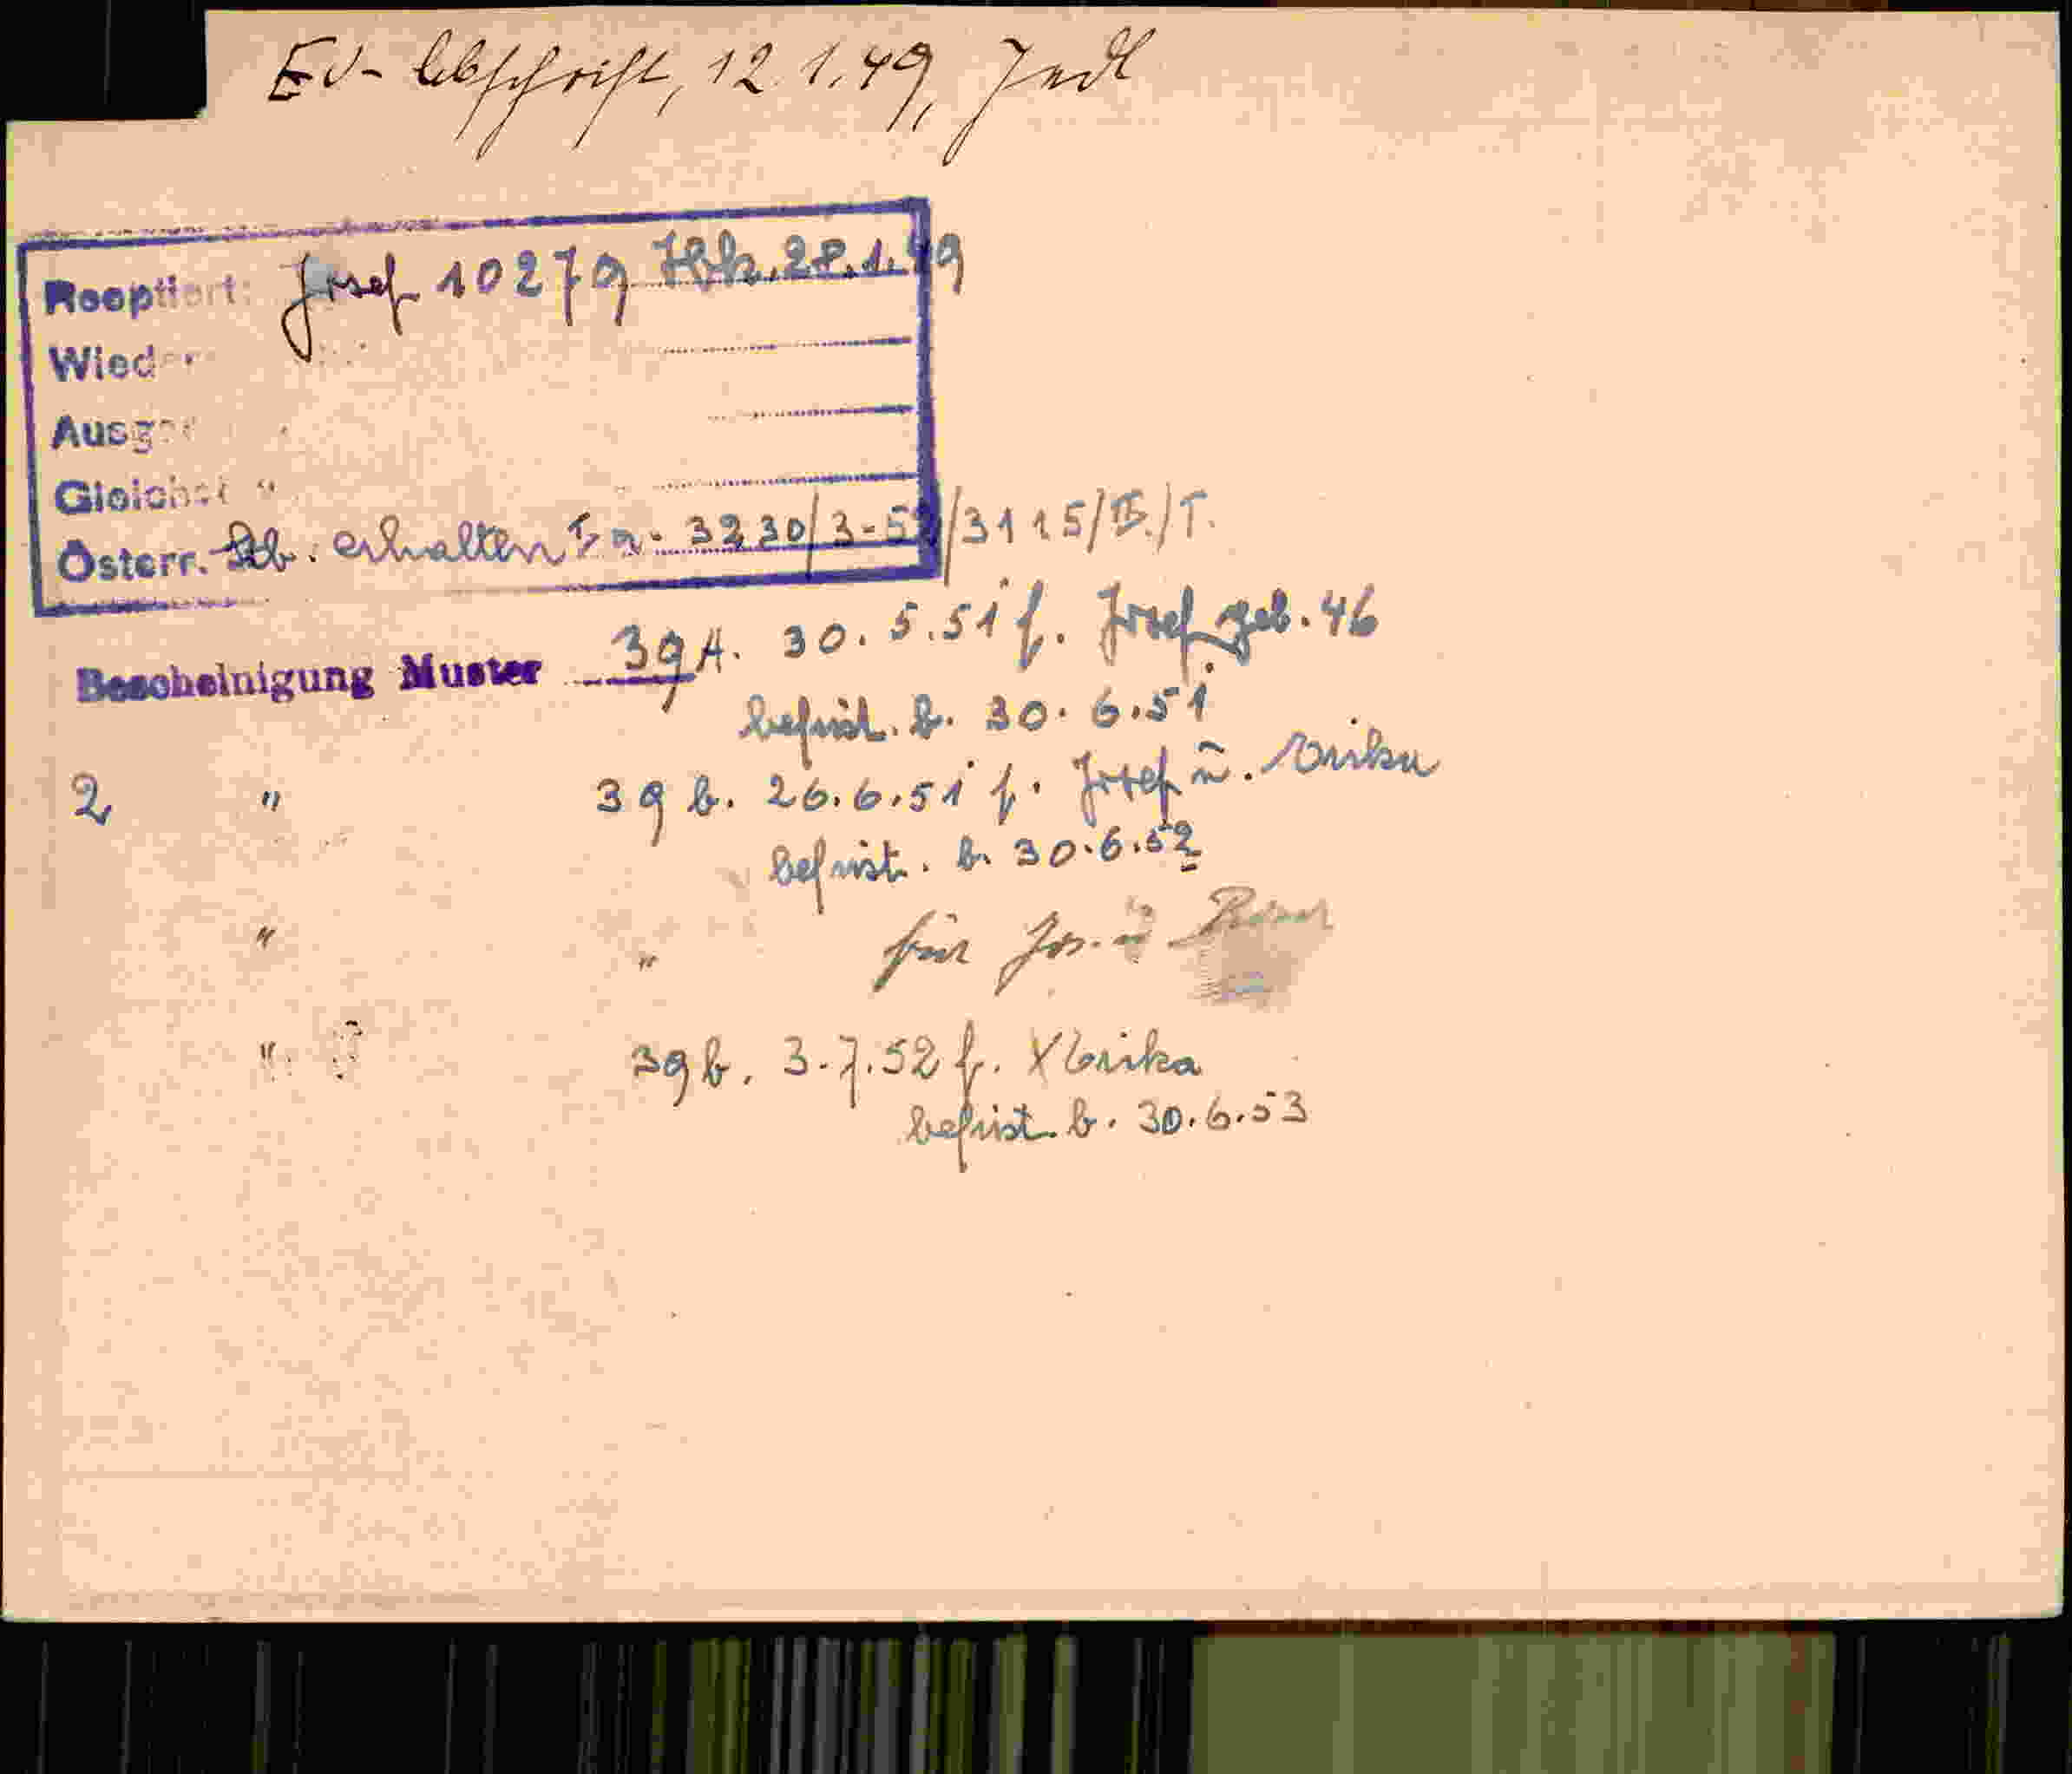 EV- Abschrift, 12.1.49,
Reoptiert: Josef 10279 Ibk. 28.1.49
Wieder
Ausge
Gleichst
Österr. Stb. erhalten 3230/3-52/3115/II/T.
Bescheinigung Muster 39A. 30.5.51 f. Josef geb. 46
befrist. b. 30.6.51
2 " 39 b. 26.6.51 f. Josef u. Erika
befrist. b. 30.6.52
" " für Jos. u.
" 39 b. 3.7.52 f. Erika
befrist. b. 30.6.53